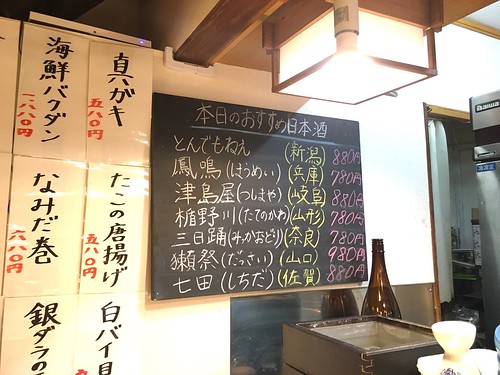 本日のおすすめ日本酒
とんでもねえ (新潟) 880円
鳳鳴(ほうめい) (兵庫) 780円
津島屋(つしまや) (岐阜) 880円
楯野川(たてのかわ) (山形) 780円
三日踊(みっかおどり) (奈良) 780円
獺祭(だっさい) (山口) 980円
七田(しちだ) (佐賀) 880円
真ガキ
五八〇円
海鮮バクダン
一八八〇円
たこの唐揚げ
五八〇円
なみだ巻
六八〇円
白バイ貝
銀ダラの